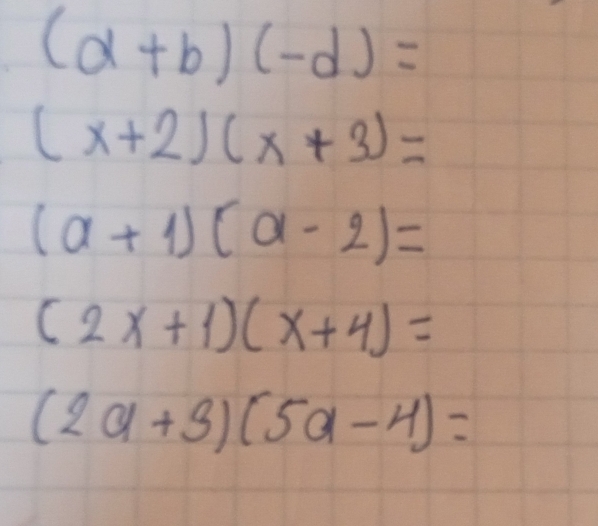 (a+b)(-d)=
(x+2)(x+3)=
(a+1)(a-2)=
(2x+1)(x+4)=
(2a+3)(5a-4)=